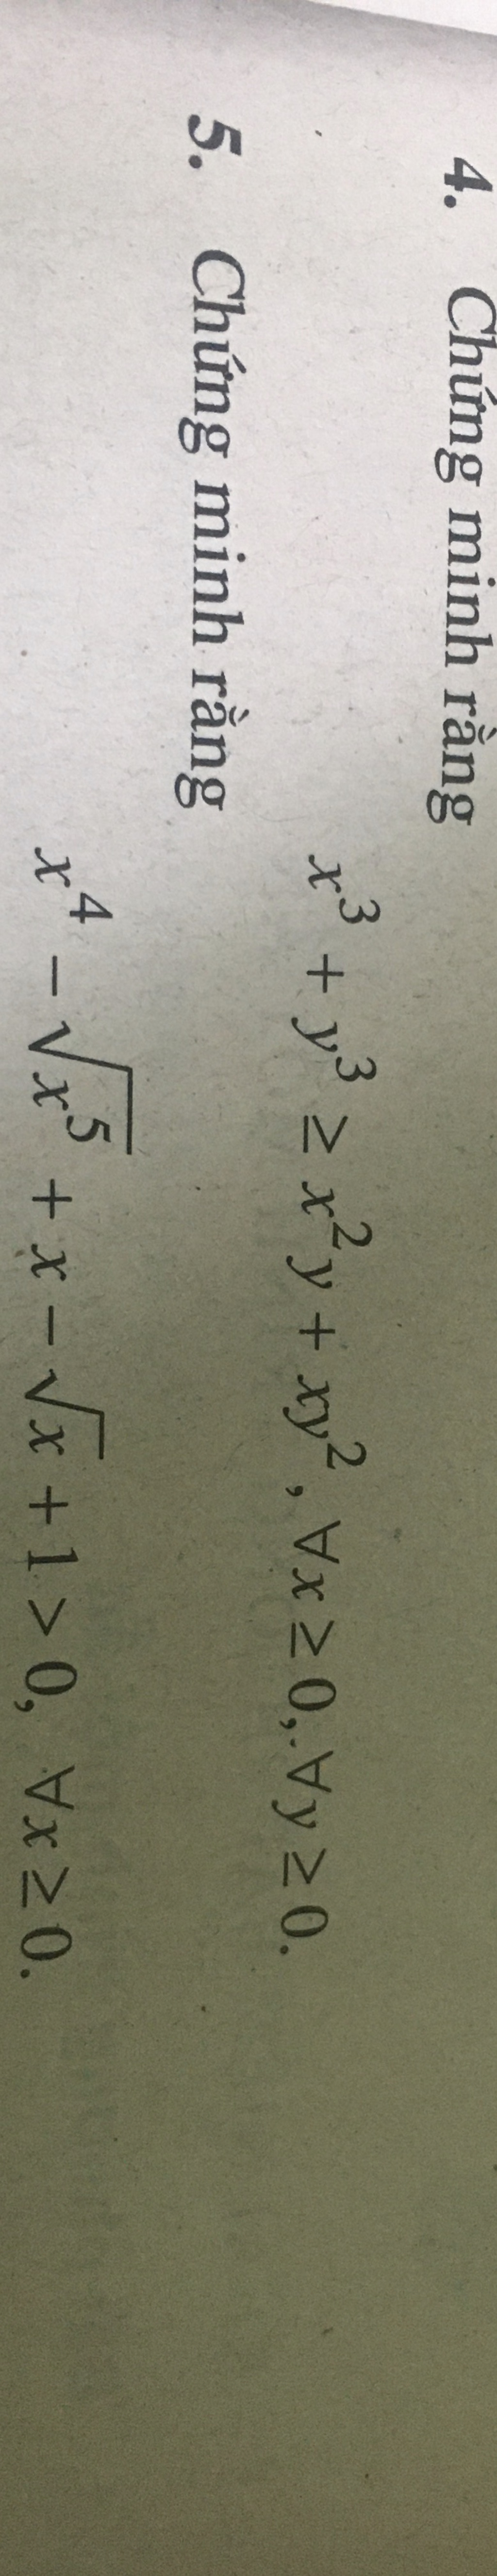 4. Chứng minh rằng
x³ + y³ ≥ x²y + xy², ∀x ≥ 0, ∀y ≥ 0.
5. Chứng minh rằng
x⁴ − √x⁵ + x − √x + 1 > 0, ∀x ≥ 0.